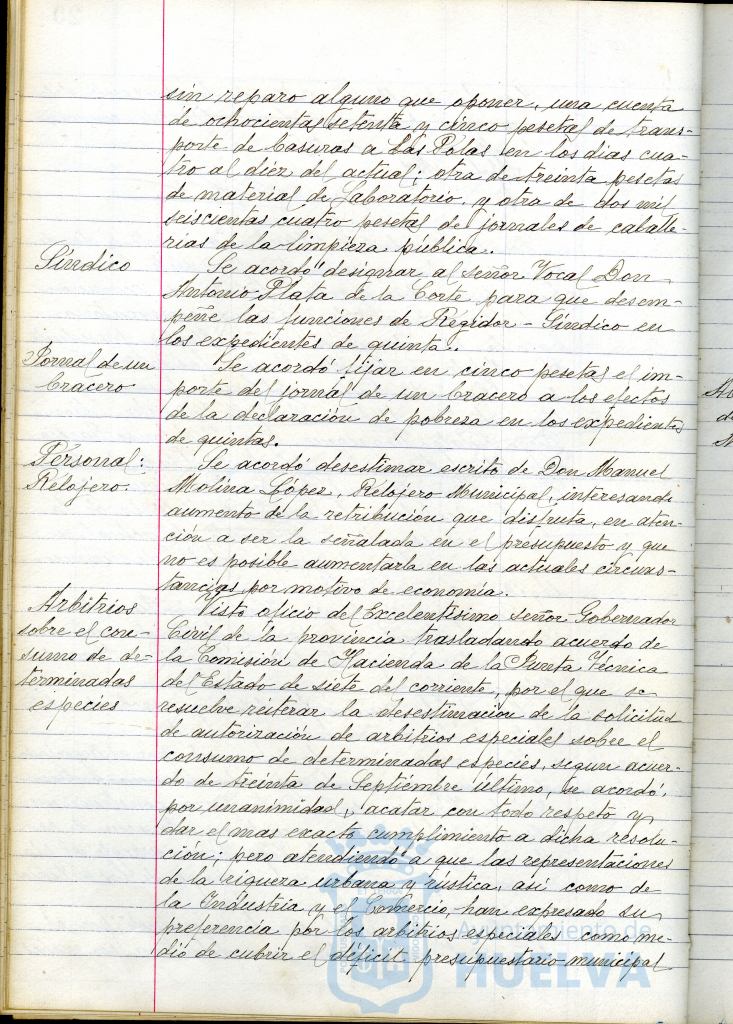 sin reparo alguno que oponer, una cuenta
de ochocientas setenta y cinco pesetas de trans-
porte de basuras a Las Polas en los dias cua-
tro al diez del actual; otra de treinta pesetas
de material de Laboratorio, y otra de dos mil
seiscientas cuatro pesetas de jornales de caballe-
rias de la limpieza pública.
Síndico
Se acordó designar al señor Vocal Don
Antonio Plata de la Corte para que desem-
peñe las funciones de Regidor-Síndico en
los expedientes de quinta.
Jornal de un
bracero
Se acordó fijar en cinco pesetas el im-
porte del jornal de un bracero a los efectos
de la declaración de pobreza en los expedientes
de quintas.
Personal:
Relojero.
Se acordó desestimar escrito de Don Manuel
Molina López, Relojero Municipal, interesando
aumento de la retribución que disfruta, en aten-
ción a ser la señalada en el presupuesto y que
no es posible aumentarla en las actuales circuns-
tancias por motivo de economía.
Arbitrios
sobre el con-
sumo de de-
terminadas
especies
Visto oficio del Excelentísimo señor Gobernador
Civil de la provincia trasladando acuerdo de
la Comisión de Hacienda de la Junta Técnica
del Estado de siete del corriente, por el que se
resuelve reiterar la desestimación de la solicitud
de autorización de arbitrios especiales sobre el
consumo de determinadas especies, segun acuer-
do de treinta de Septiembre último, se acordó,
por unanimidad, acatar con todo respeto y
dar el mas exacto cumplimiento a dicha resolu-
ción; pero atendiendo a que las representaciones
de la riqueza urbana y rústica, asi como de
la Industria y el Comercio, han expresado su
preferencia por los arbitrios especiales como me-
dio de cubrir el déficit presupuestario municipal
Ayuntamiento de
HUELVA